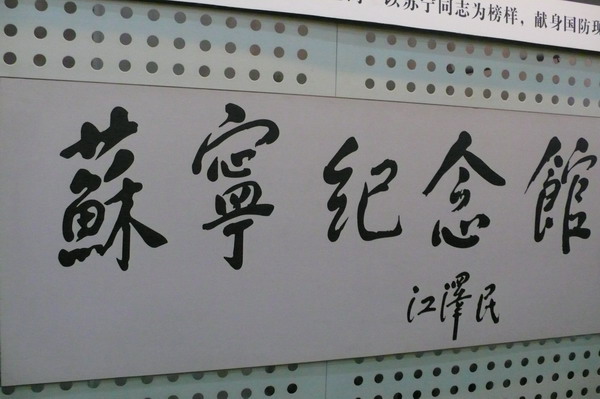 以苏宁同志为榜样，献身国防现
蘇寧纪念館
江澤民